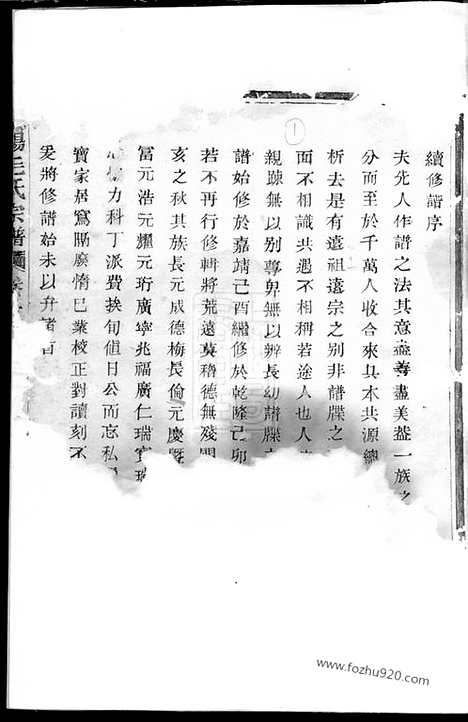 續修譜序
夫先人作譜之法其意盡善盡美蓋一族之
分而至於千萬人收合來具本共源總
析去是有遠祖遠宗之別非譜牒之
面不相識共遇不相稱若途人也人
親踈無以別尊卑無以辨長幼譜牒
譜始修於嘉靖己酉繼修於乾隆己卯
若不再行修輯將荒遠莫稽德無殘
亥之秋其族長元成德梅長倫元慶
富元浩元耀元珩廣寧兆福廣仁瑞寶瑞
力科丁派費挨旬值日公而忘私
寶家居寫賜廢惰巳業校正對讀刻不
爰將修譜始末以弁諸首
毛氏宗譜
1
www.fozhu920.com